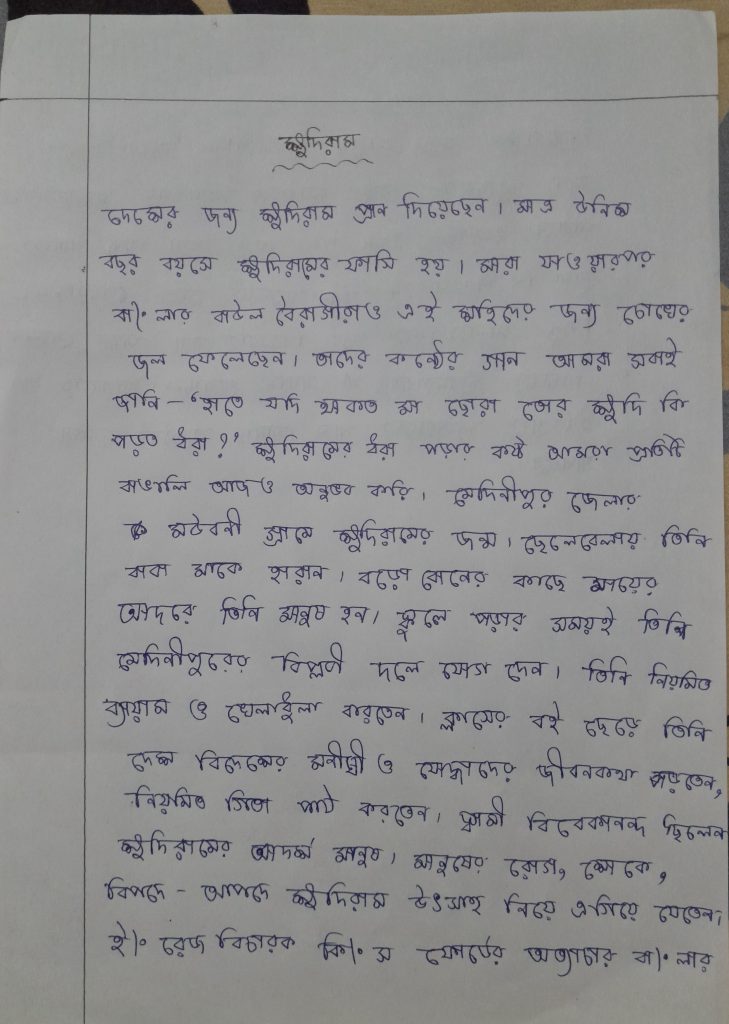 ক্ষুদিরাম
দেশের জন্য ক্ষুদিরাম প্রান দিয়েছেন। মাত্র উনিশ
বছর বয়সে ক্ষুদিরামের ফাসি হয়। মারা যাওয়ারপর
বাংলার বাউল বৈরাগীরাও এই শহিদের জন্য চোখের
জল ফেলেছেন। তাদের কন্ঠের গান আমরা সবাই
জানি - 'হাতে যদি থাকত মা ছোরা তোর ক্ষুদি কি
পড়ত ধরা?' ক্ষুদিরামের ধরা পড়ার কষ্ট আমরা প্রতিটি
বাঙালি আজও অনুভব করি। মেদিনীপুর জেলার
মউবনী গ্রামে ক্ষুদিরামের জন্ম। ছেলেবেলায় তিনি
বাবা মাকে হারান। বড়ো বোনের কাছে মায়ের
আদরে তিনি মানুষ হন। স্কুলে পড়ার সময়ই তিনি
মেদিনীপুরের বিপ্লবী দলে যোগ দেন। তিনি নিয়মিত
ব্যায়াম ও খেলাধুলা করতেন। ক্লাসের বই ছেড়ে তিনি
দেশ বিদেশের মনীষী ও যোদ্ধাদের জীবনকথা পড়তেন,
নিয়মিত গিতা পাঠ করতেন। স্বামী বিবেকানন্দ ছিলেন
ক্ষুদিরামের আদর্শ মানুষ। মানুষের রোগ, শোকে,
বিপদে - আপদে ক্ষুদিরাম উৎসাহ নিয়ে এগিয়ে যেতেন।
ইংরেজ বিচারক কিংস ফোর্ডের অত্যাচার বাংলার